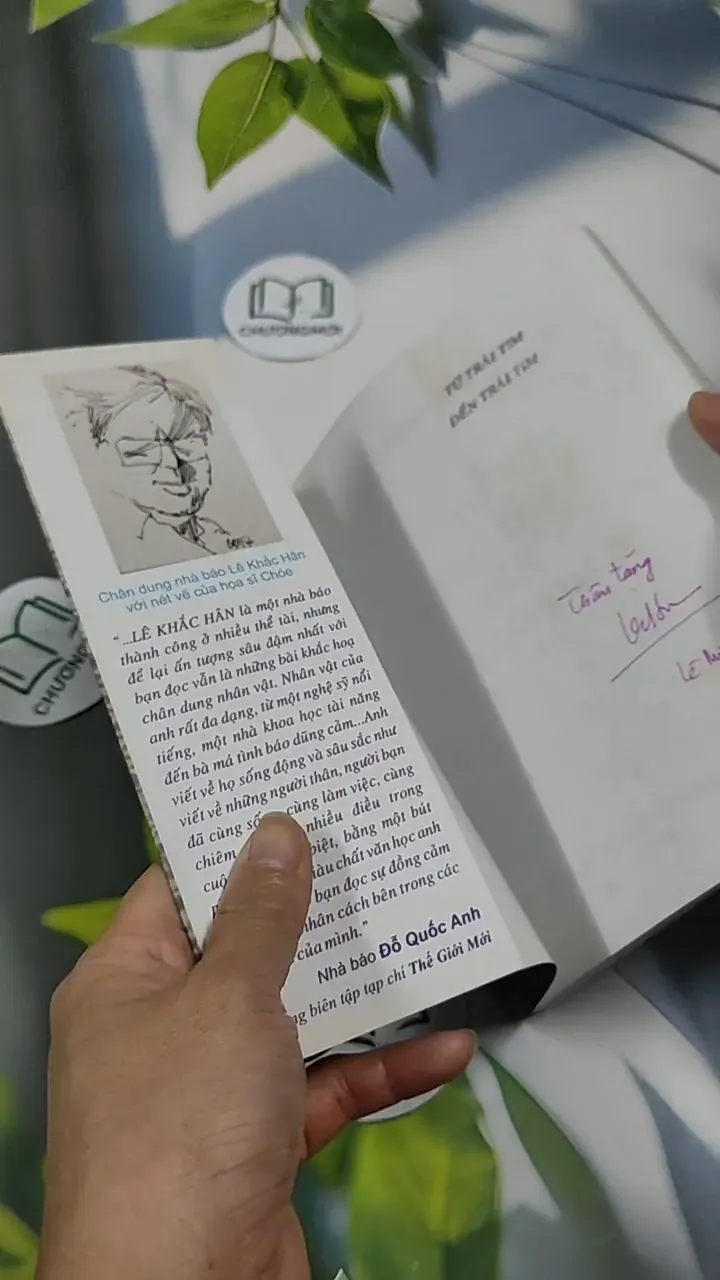 CHUONGMOI
TỪ TRÁI TIM
ĐẾN TRÁI TIM
Chân dung nhà báo Lê Khắc Hân
với nét vẽ của họa sĩ Chóe
“...LÊ KHẮC HÂN là một nhà báo
thành công ở nhiều thể tài, nhưng
để lại ấn tượng sâu đậm nhất với
bạn đọc vẫn là những bài khắc hoạ
chân dung nhân vật. Nhân vật của
anh rất đa dạng, từ một nghệ sỹ nổi
tiếng, một nhà khoa học tài năng
đến bà má tình báo dũng cảm...Anh
viết về họ sống động và sâu sắc như
viết về những người thân, người bạn
đã cùng cùng làm việc, cùng
chiêm nhiều điều trong
bằng một bút
chất văn học anh
bạn đọc sự đồng cảm
nhân cách bên trong các
của mình.”
Nhà báo Đỗ Quốc Anh
biên tập tạp chí Thế Giới Mới
Thân tặng
CHUONGMOI